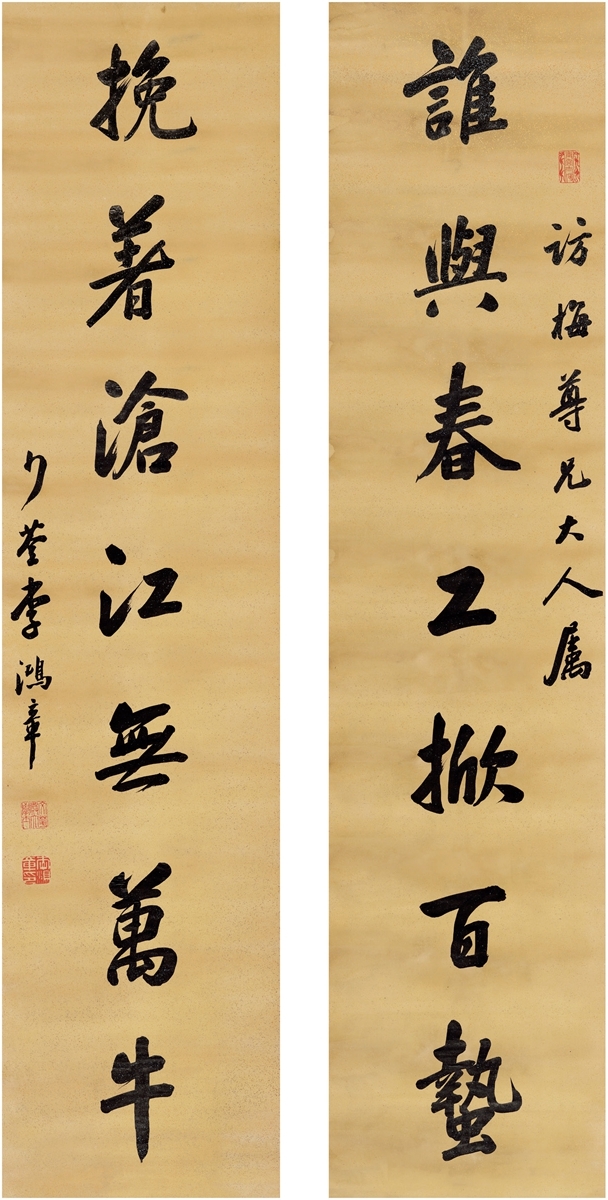 訪梅尊兄大人属
誰與春工掀百蟄
挽著滄江無萬牛
少荃李鴻章